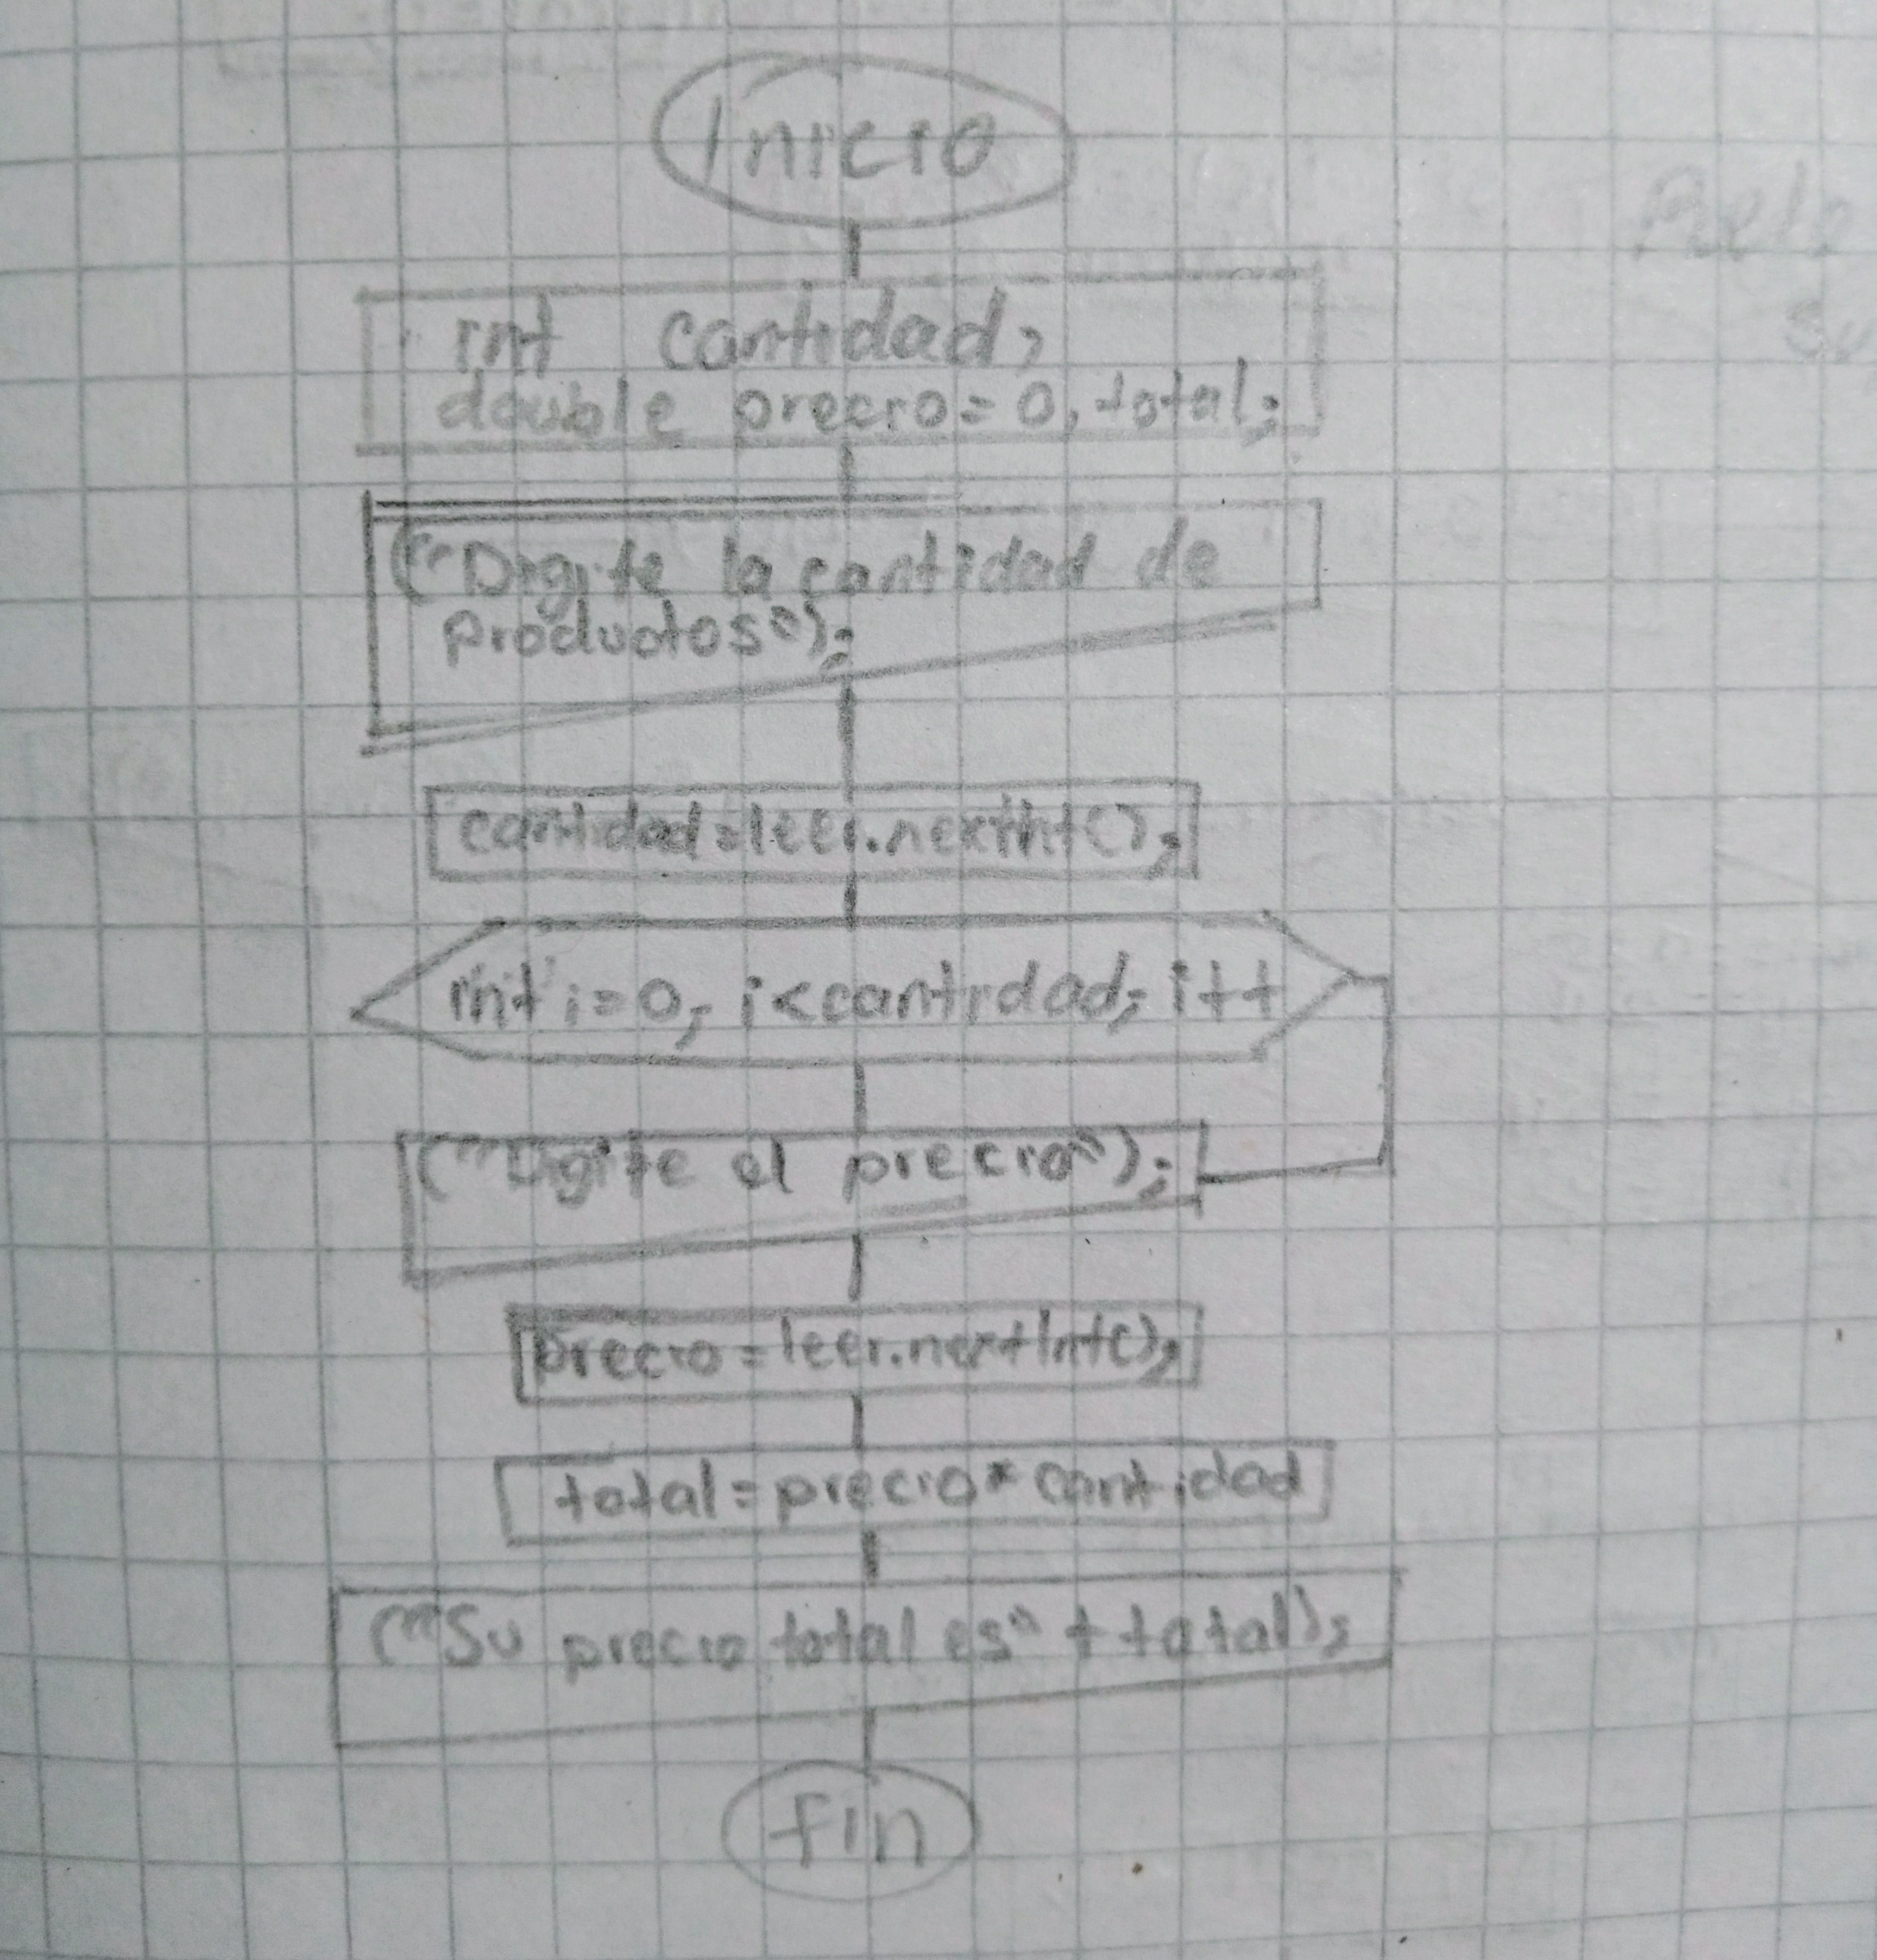 Inicio
int cantidad;
double precio = 0, total;
("Digite la cantidad de
productos");
cantidad = leer.nextInt();
int i = 0; i < cantidad; i++
("Digite el precio");
precio = leer.nextInt();
total = precio * cantidad
("Su precio total es" + total);
fin